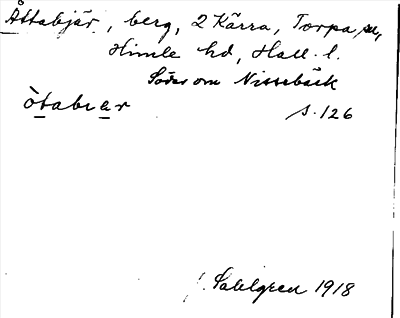 Åttabjär, berg, 2 Kärra, Torpa sn,
Himle hd, Hall. l.
Söder om Nissebäck
òtabær s. 126
J. Sahlgren 1918